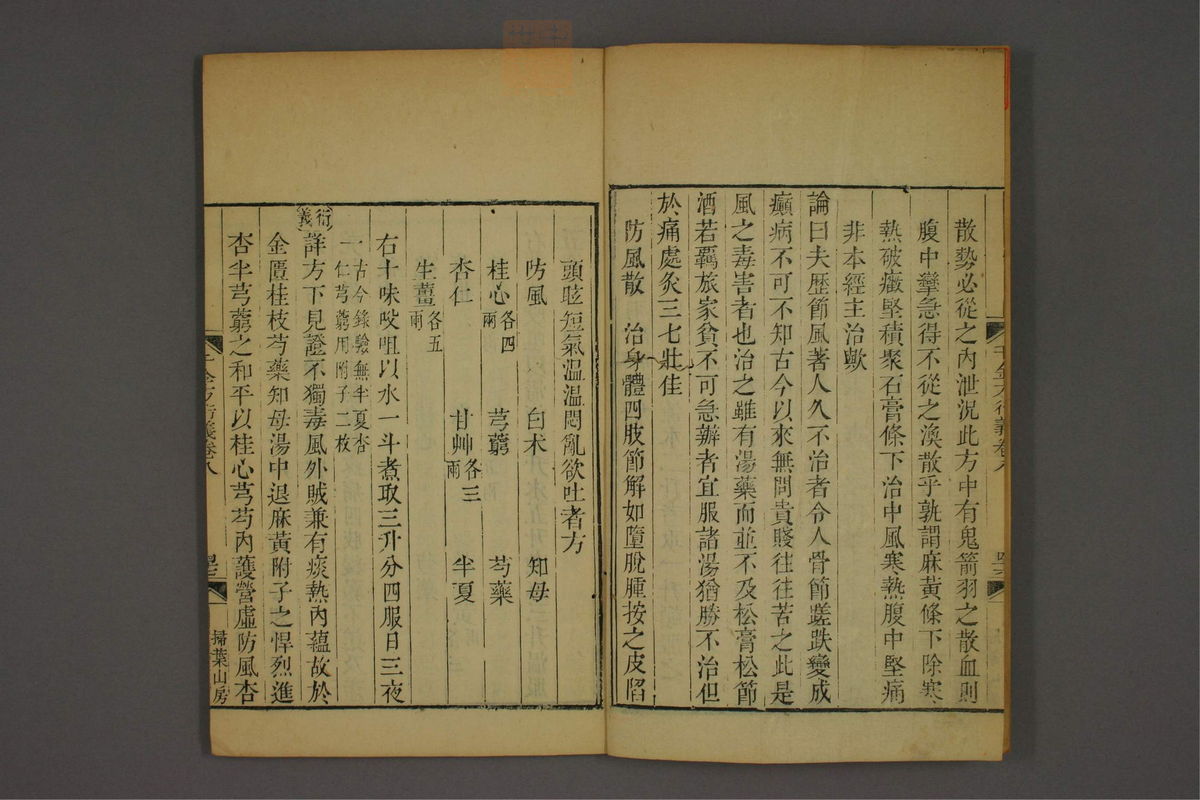 散勢必從之內泄況此方中有鬼箭羽之散血則
腹中攣急得不從之渙散乎孰謂麻黃條下除寒
熱破癥堅積聚石膏條下治中風寒熱腹中堅痛
非本經主治歟
論曰夫歷節風著人久不治者令人骨節蹉跌變成
癲病不可不知古今以來無問貴賤往往苦之此是
風之毒害者也治之雖有湯藥而並不及松膏松節
酒若羇旅家貧不可急辦者宜服諸湯猶勝不治但
於痛處灸三七壯佳
防風散 治身體四肢節解如墮脫腫按之皮陷
頭眩短氣溫溫悶亂欲吐者方
防風 白朮 知母
桂心各四兩 芎藭 芍藥
杏仁 甘艸各三兩 半夏
生薑各五兩
右十味㕮咀以水一斗煮取三升分四服日三夜
一古今錄驗無半夏杏仁芎藭用附子二枚
衍義詳方下見證不獨毒風外賊兼有痰熱內蘊故於
金匱桂枝芍藥知母湯中退麻黃附子之悍烈進
杏半芎藭之和平以桂心芎芍內護營虛防風杏
千金方衍義卷八
掃葉山房